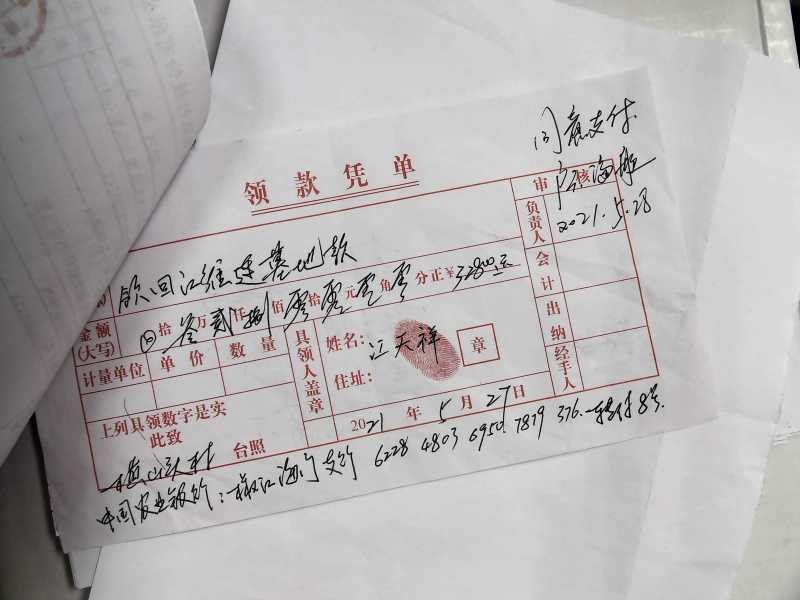 领款凭单
同意支付
海
2021.5.28
审核
负责人
会计
出纳
经手人
领回江维建基地款
金额(大写)
拾叁万贰仟捌佰零拾零元零角零分正¥32800元
计量单位 单价 数量
具领人盖章
姓名:江天祥 章
住址:
上列具领数字是实
此致
台照
2021年5月27日
村
中国农业银行:椒江海门支行 6228 4803 6950 7879 376